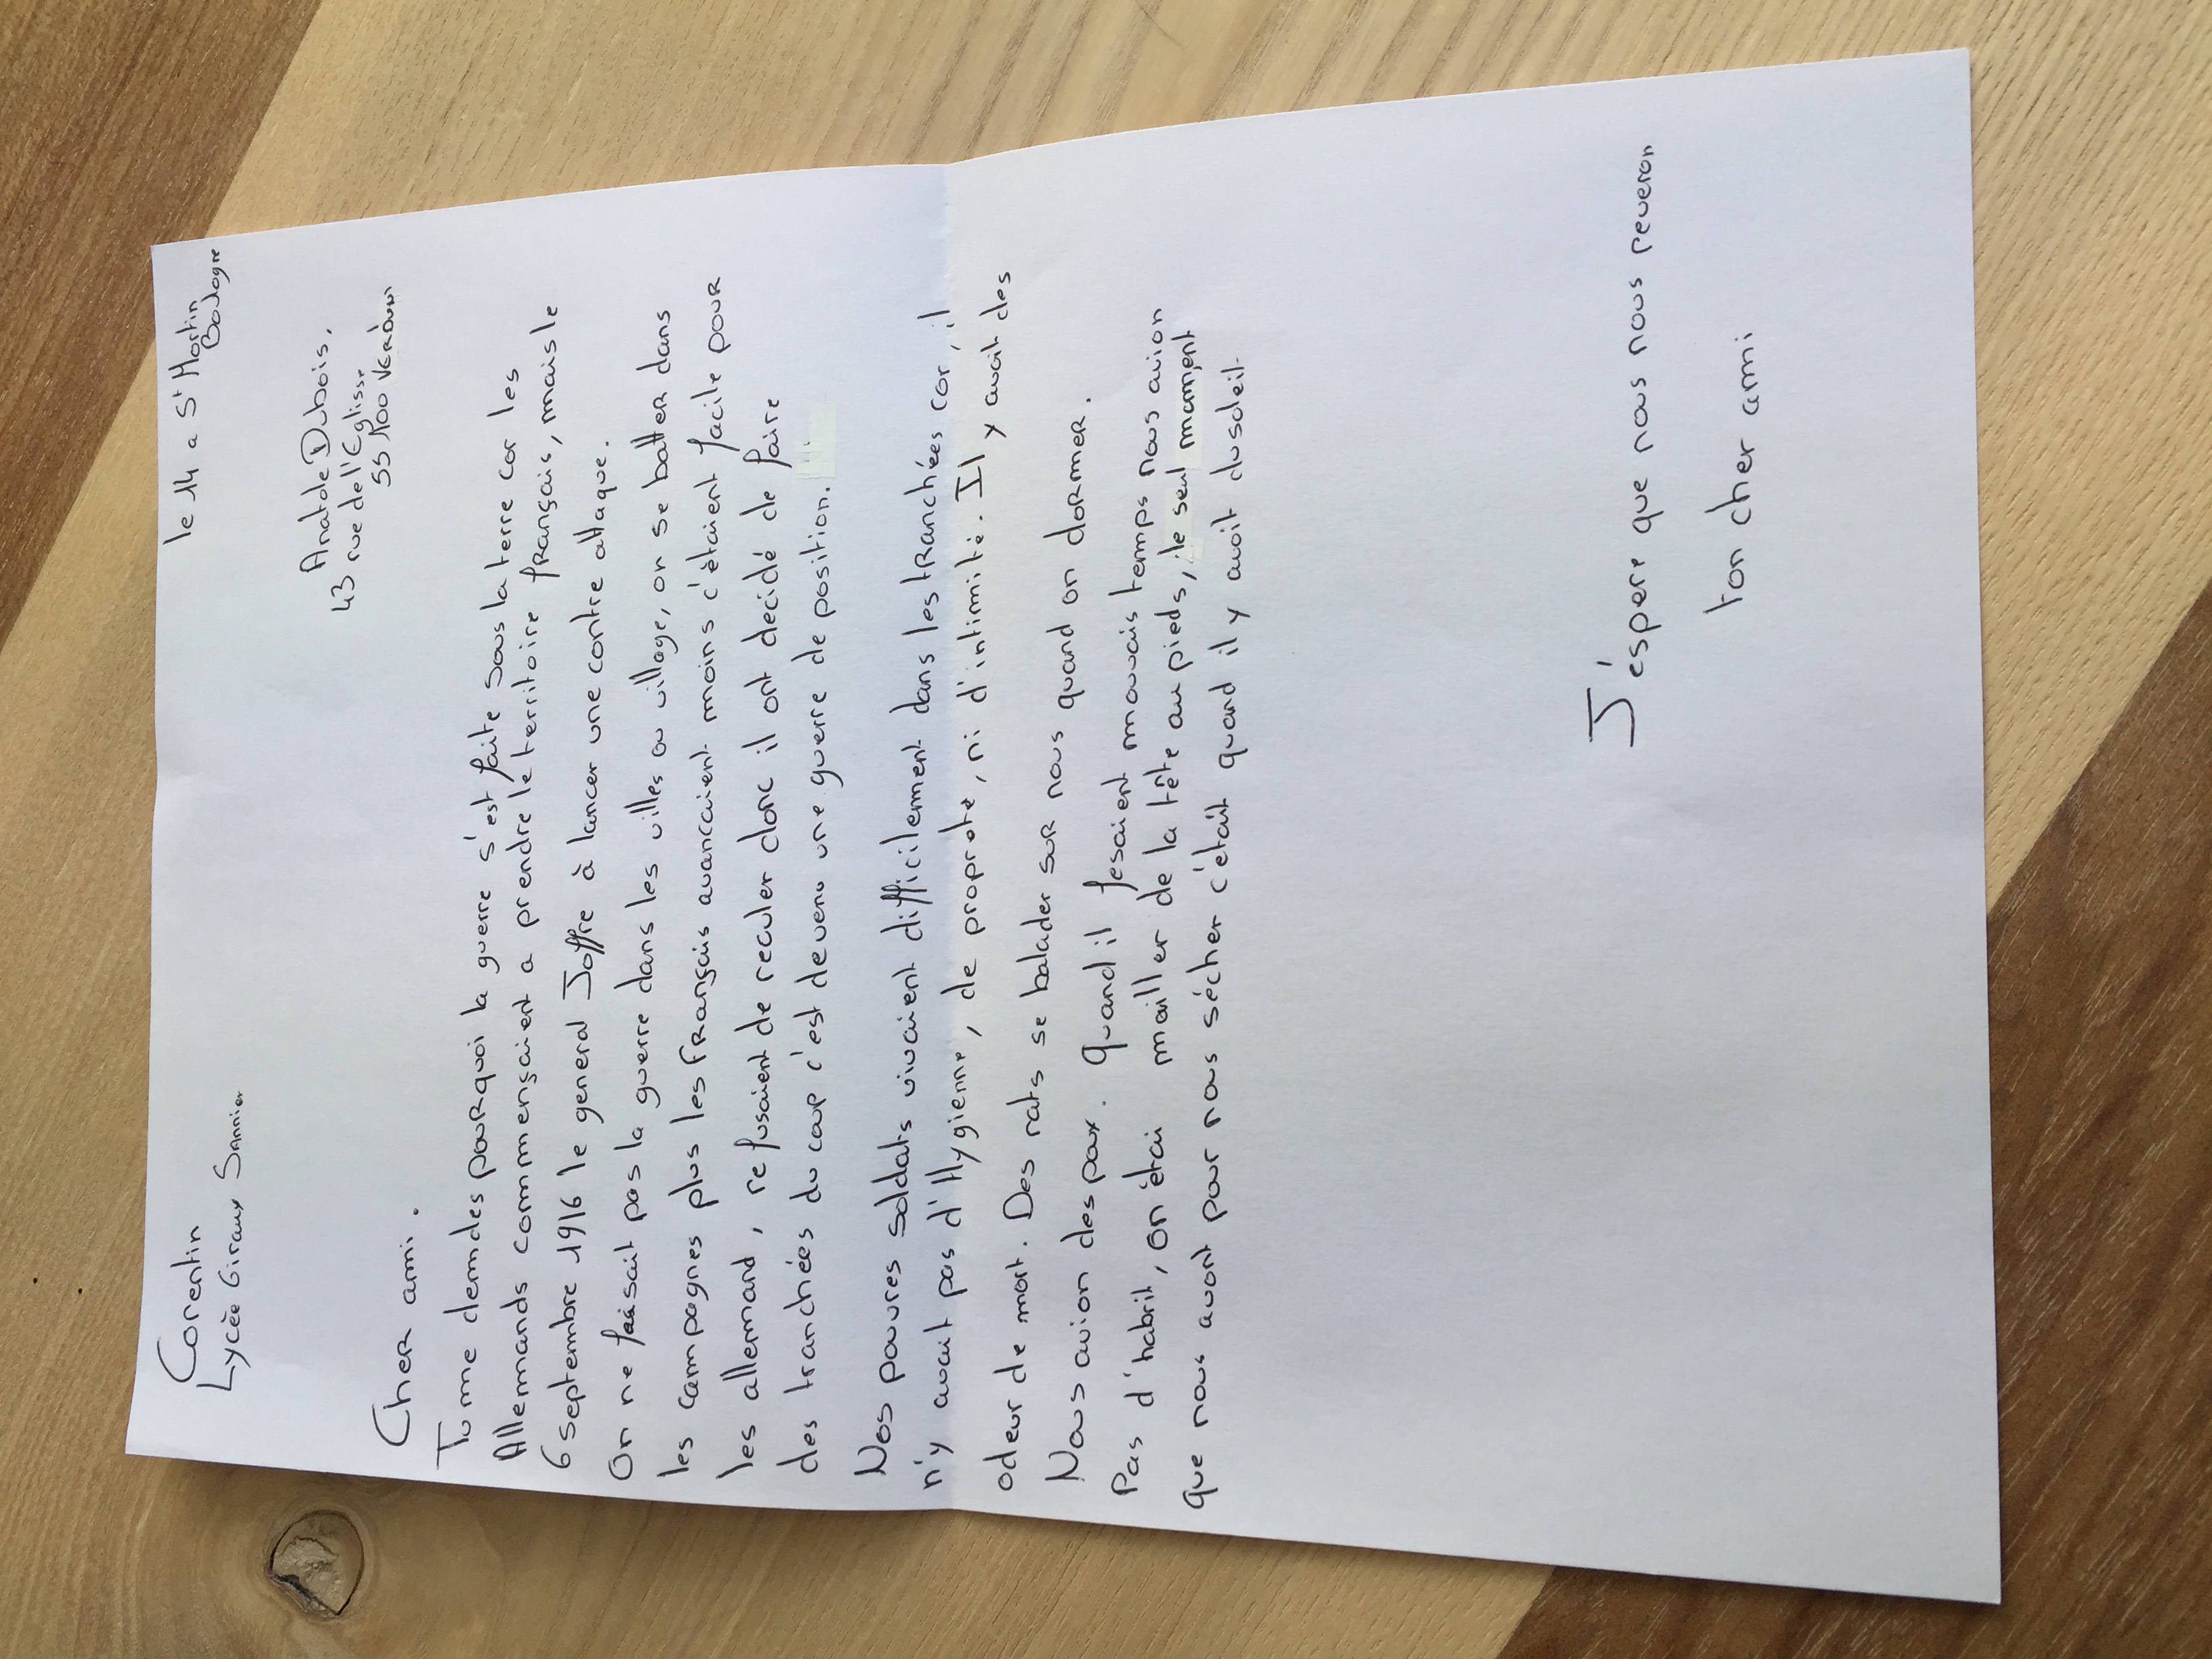 Corentin
Lycée Giraux Sannier
le 14 a St Martin
Boulogne
Anatole Dubois,
43 rue de l'Eglisse
55 100 Verdun
Cher ami.
Tu me demdes pourquoi la guerre s'est faite sous la terre car les
Allemands commençaient a prendre le territoire français, mais le
6 septembre 1916 le general Joffre à lancer une contre attaque.
On ne faisait pas la guerre dans les villes ou village, on se batter dans
les campagnes plus les Français avancaient moins c'étaient facile pour
les allemand, refusaient de reculer donc il ont decidé de faire
des tranchées du coup c'est devenu une guerre de position.
Nos pauvres soldats vivaient difficilement dans les tranchées car, il
n'y avait pas d'Hygienne, de proprete, ni d'intimité. Il y avait des
odeur de mort. Des rats se balader sur nous quand on dormer.
Nous avion des poux. Quand il fesaient mauvais temps nous avion
Pas d'habrit, on étai mouiller de la tête au pieds, le seul moment
que nous avont pour nous sécher c'était quand il y avait du soleil.
J'éspere que nous nous reveron
ton cher ami